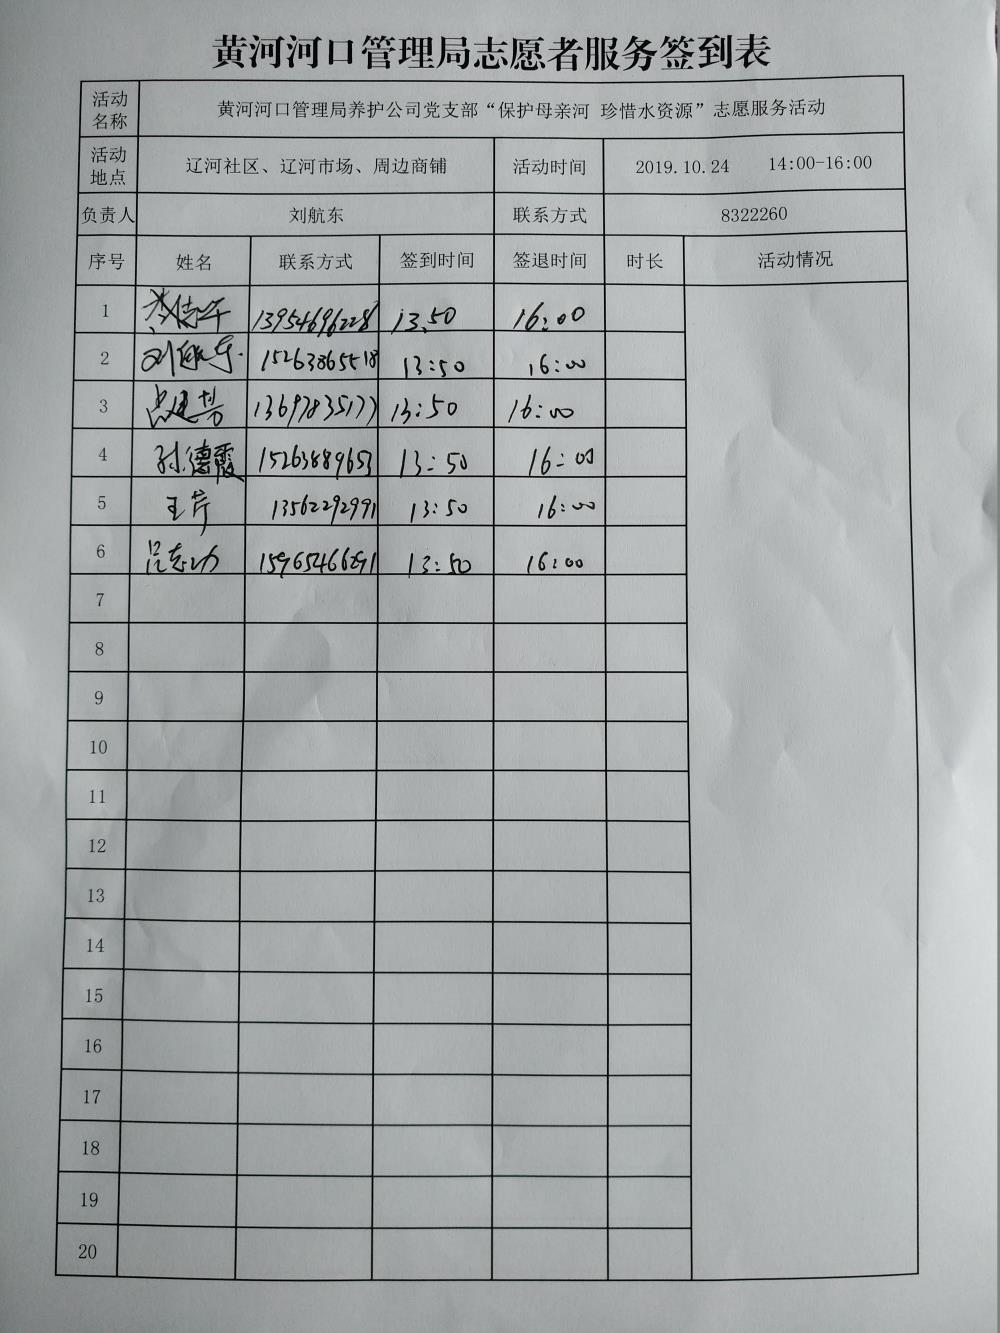 黄河河口管理局志愿者服务签到表
活动名称 黄河河口管理局养护公司党支部“保护母亲河 珍惜水资源”志愿服务活动
活动地点 辽河社区、辽河市场、周边商铺 活动时间 2019.10.24 14:00-16:00
负责人 刘航东 联系方式 8322260
序号 姓名 联系方式 签到时间 签退时间 时长 活动情况
1 13954696228 13:50 16:00
2 刘航东 15263865518 13:50 16:00
3 13697835177 13:50 16:00
4 孙德霞 15263889653 13:50 16:00
5 王芹 13562292991 13:50 16:00
6 吕志功 15965466291 13:50 16:00
7
8
9
10
11
12
13
14
15
16
17
18
19
20